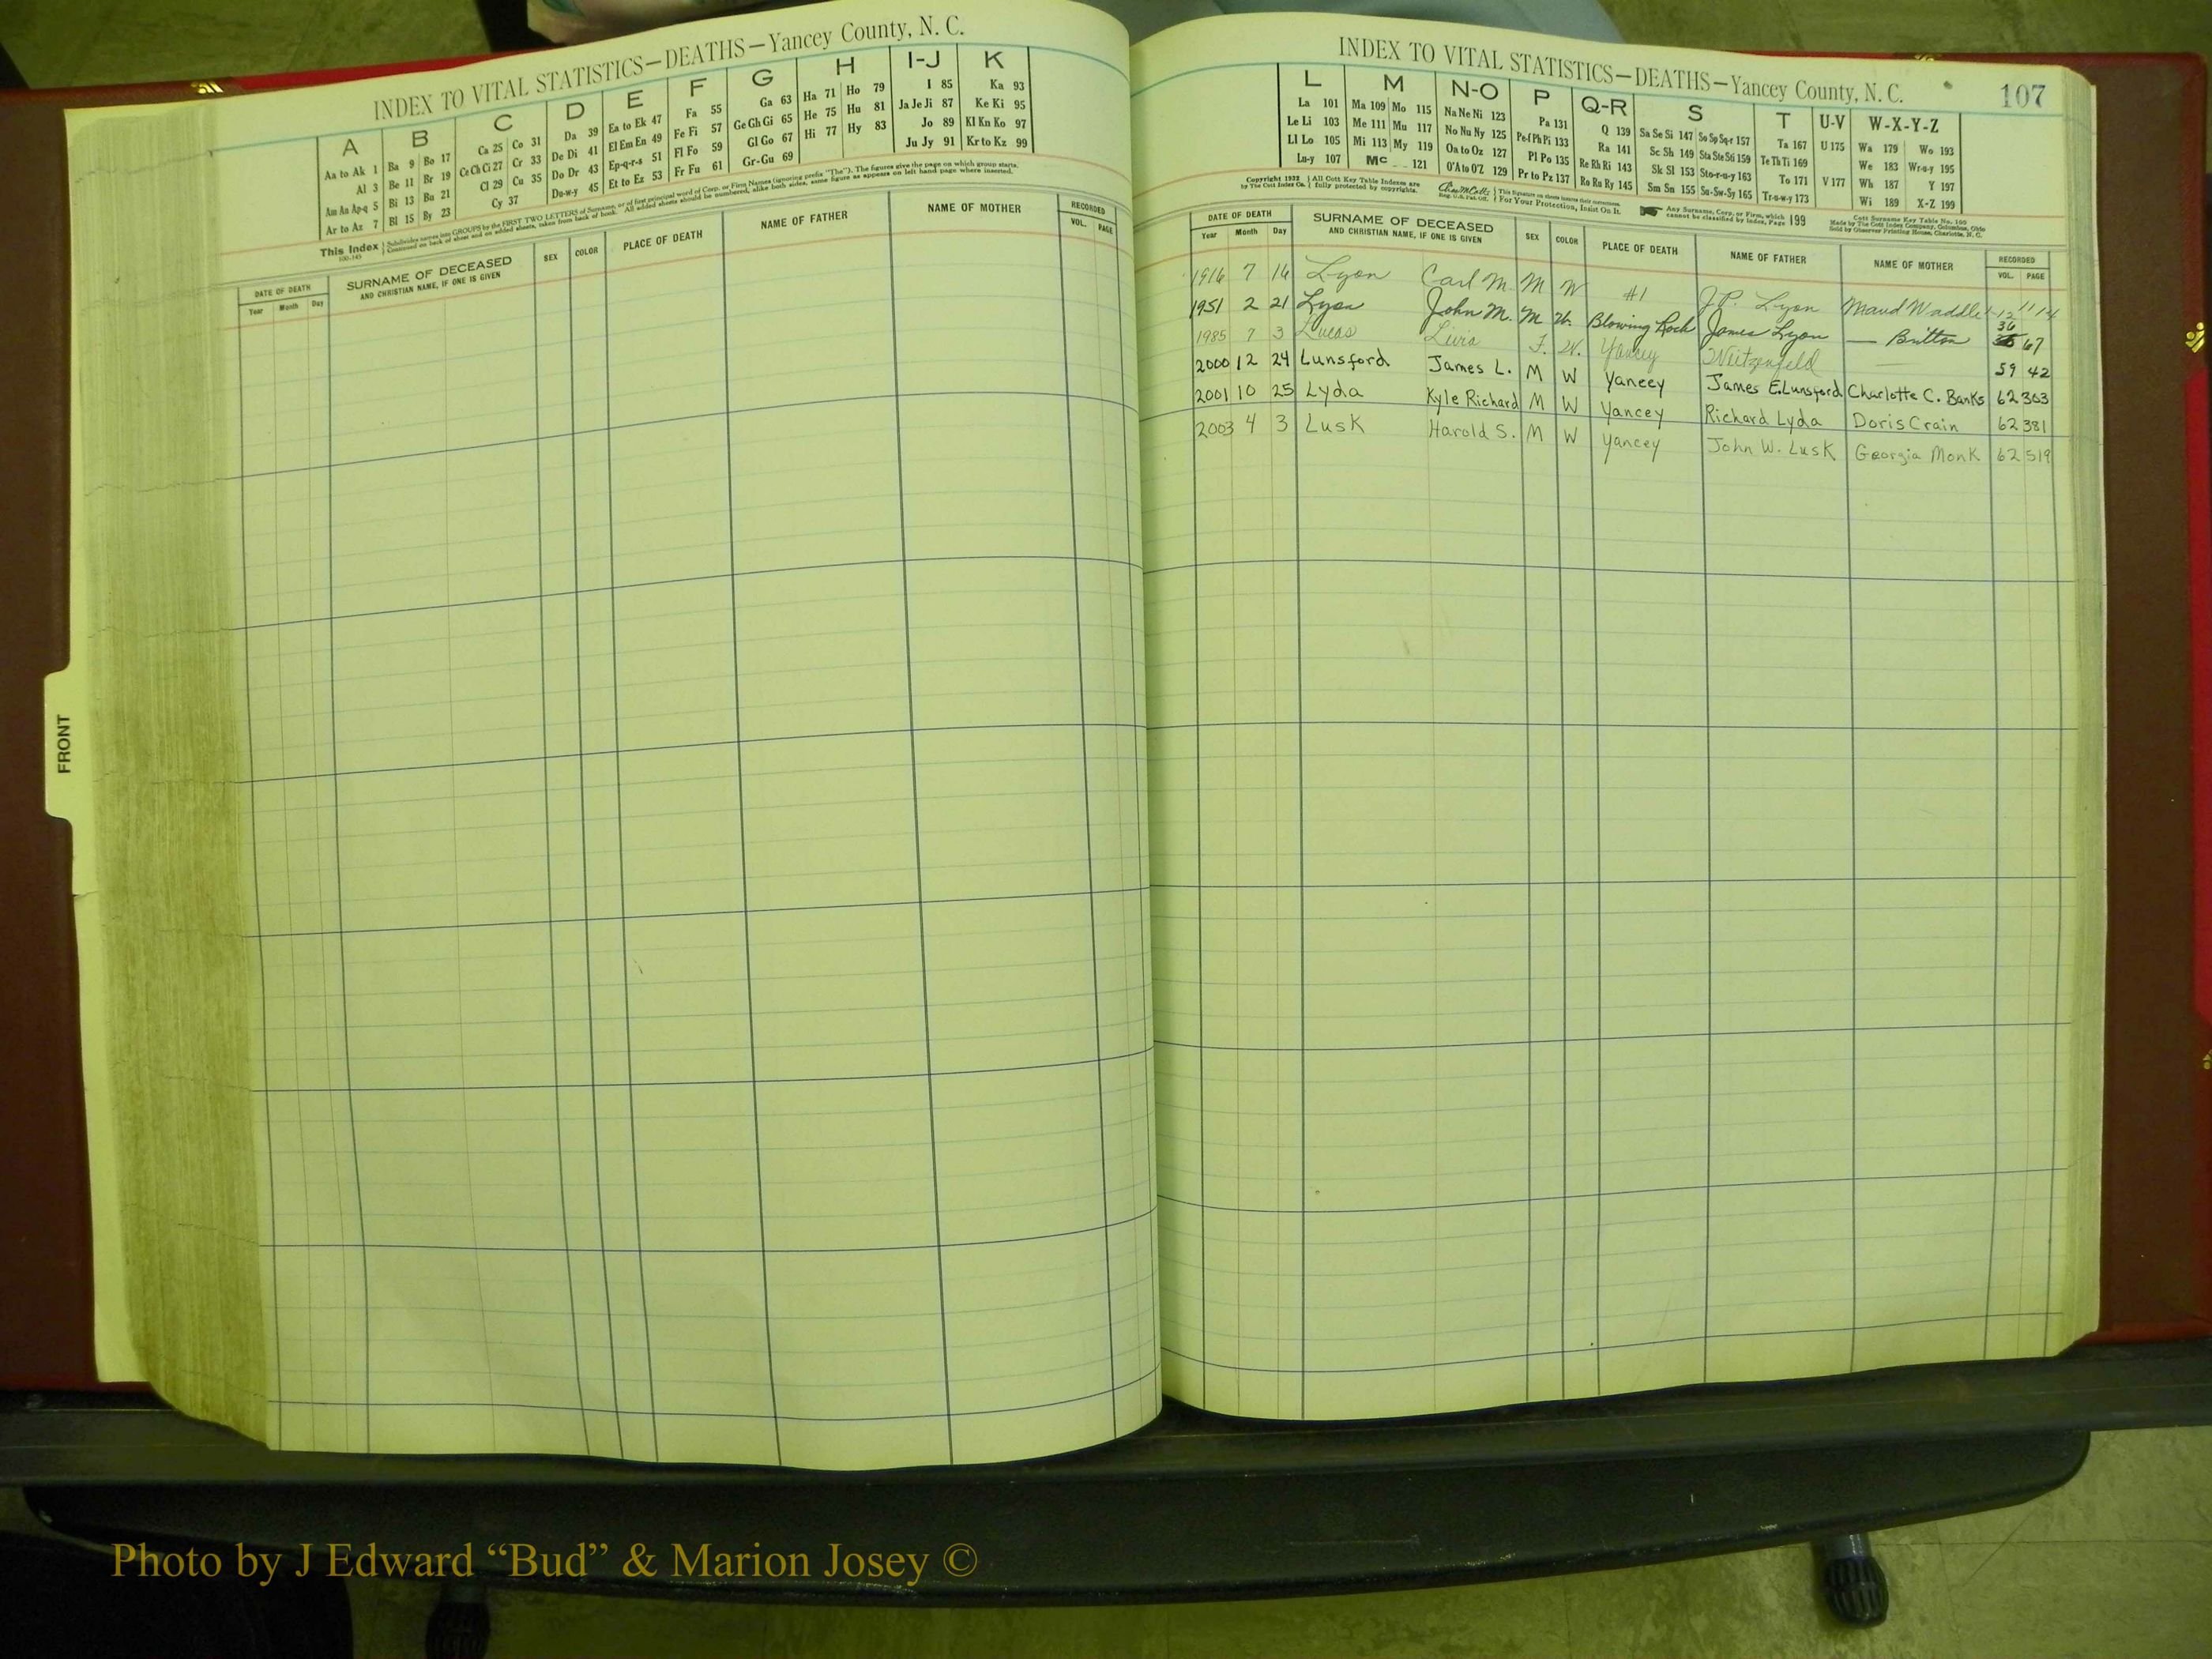 INDEX TO VITAL STATISTICS—DEATHS—Yancey County, N. C.
A B C D E F G H I-J K
Aa to Ak 1 Ba 9 Bo 17 Ca 25 Co 31 Da 39 Ea to Ek 47 Fa 55 Ga 63 Ha 71 Ho 79 I 85 Ka 93
Al 3 Be 11 Br 19 Ce Ch Ci 27 Cr 33 De Di 41 El Em En 49 Fe Fi 57 Ge Gh Gi 65 He 75 Hu 81 Ja Je Ji 87 Ke Ki 95
Am An Ap-q 5 Bi 13 Bu 21 Cl 29 Cu 35 Do Dr 43 Ep-q-r-s 51 Fl Fo 59 Gl Go 67 Hi 77 Hy 83 Jo 89 Kl Kn Ko 97
Ar to Az 7 Bl 15 By 23 Cy 37 Du-w-y 45 Et to Ez 53 Fr Fu 61 Gr-Gu 69 Ju Jy 91 Kr to Kz 99
This Index Subdivides names into GROUPS by the FIRST TWO LETTERS of Surname, or of first principal word of Corp. or Firm Names (ignoring prefix "The"). The figures give the page on which group starts.
Continued on back of sheet and on added sheets, taken from back of book. All added sheets should be numbered, alike both sides, same figure as appears on left hand page where inserted.
DATE OF DEATH SURNAME OF DECEASED SEX COLOR PLACE OF DEATH NAME OF FATHER NAME OF MOTHER RECORDED
Year Month Day AND CHRISTIAN NAME, IF ONE IS GIVEN VOL. PAGE
FRONT
INDEX TO VITAL STATISTICS—DEATHS—Yancey County, N. C. 107
L M N-O P Q-R S T U-V W-X-Y-Z
La 101 Ma 109 Mo 115 Na Ne Ni 123 Pa 131 Q 139 Sa Se Si 147 So Sp Sq-r 157 Ta 167 U 175 Wa 179 Wo 193
Le Li 103 Me 111 Mu 117 No Nu Ny 125 Pe-f Ph Pi 133 Ra 141 Sc Sh 149 Sta Ste Sti 159 Te Th Ti 169 We 183 Wr-u-y 195
Ll Lo 105 Mi 113 My 119 Oa to Oz 127 Pl Po 135 Re Rh Ri 143 Sk Sl 153 Sto-r-u-y 163 To 171 V 177 Wh 187 Y 197
Lu-y 107 Mc 121 O'A to O'Z 129 Pr to Pz 137 Ro Ru Ry 145 Sm Sn 155 Su-Sw-Sy 165 Tr-u-w-y 173 Wi 189 X-Z 199
Copyright 1932 All Cott Key Table Indexes are This Signature on sheets insures their correctness. Any Surname, Corp. or Firm, which Cott Surname Key Table No. 100
by The Cott Index Co. fully protected by copyrights. Reg. U.S. Pat. Off. For Your Protection, Insist On It. cannot be classified by Index, Page 199 Made by The Cott Index Company, Columbus, Ohio
Sold by Observer Printing House, Charlotte, N. C.
DATE OF DEATH SURNAME OF DECEASED SEX COLOR PLACE OF DEATH NAME OF FATHER NAME OF MOTHER RECORDED
Year Month Day AND CHRISTIAN NAME, IF ONE IS GIVEN VOL. PAGE
1916 7 16 Lyon Carl M. M W #1 J.P. Lyon Maud Waddle
1951 2 21 Lyon John M. M W. Blowing Rock James Lyon — Britton 36 67
1985 7 3 Lucas Livia F. W. Yancey
2000 12 24 Lunsford James L. M W Yancey James E. Lunsford Charlotte C. Banks 62 303
2001 10 25 Lyda Kyle Richard M W Yancey Richard Lyda Doris Crain 62 381
2003 4 3 Lusk Harold S. M W Yancey John W. Lusk Georgia Monk 62 519
59 42
Photo by J Edward “Bud” & Marion Josey ©